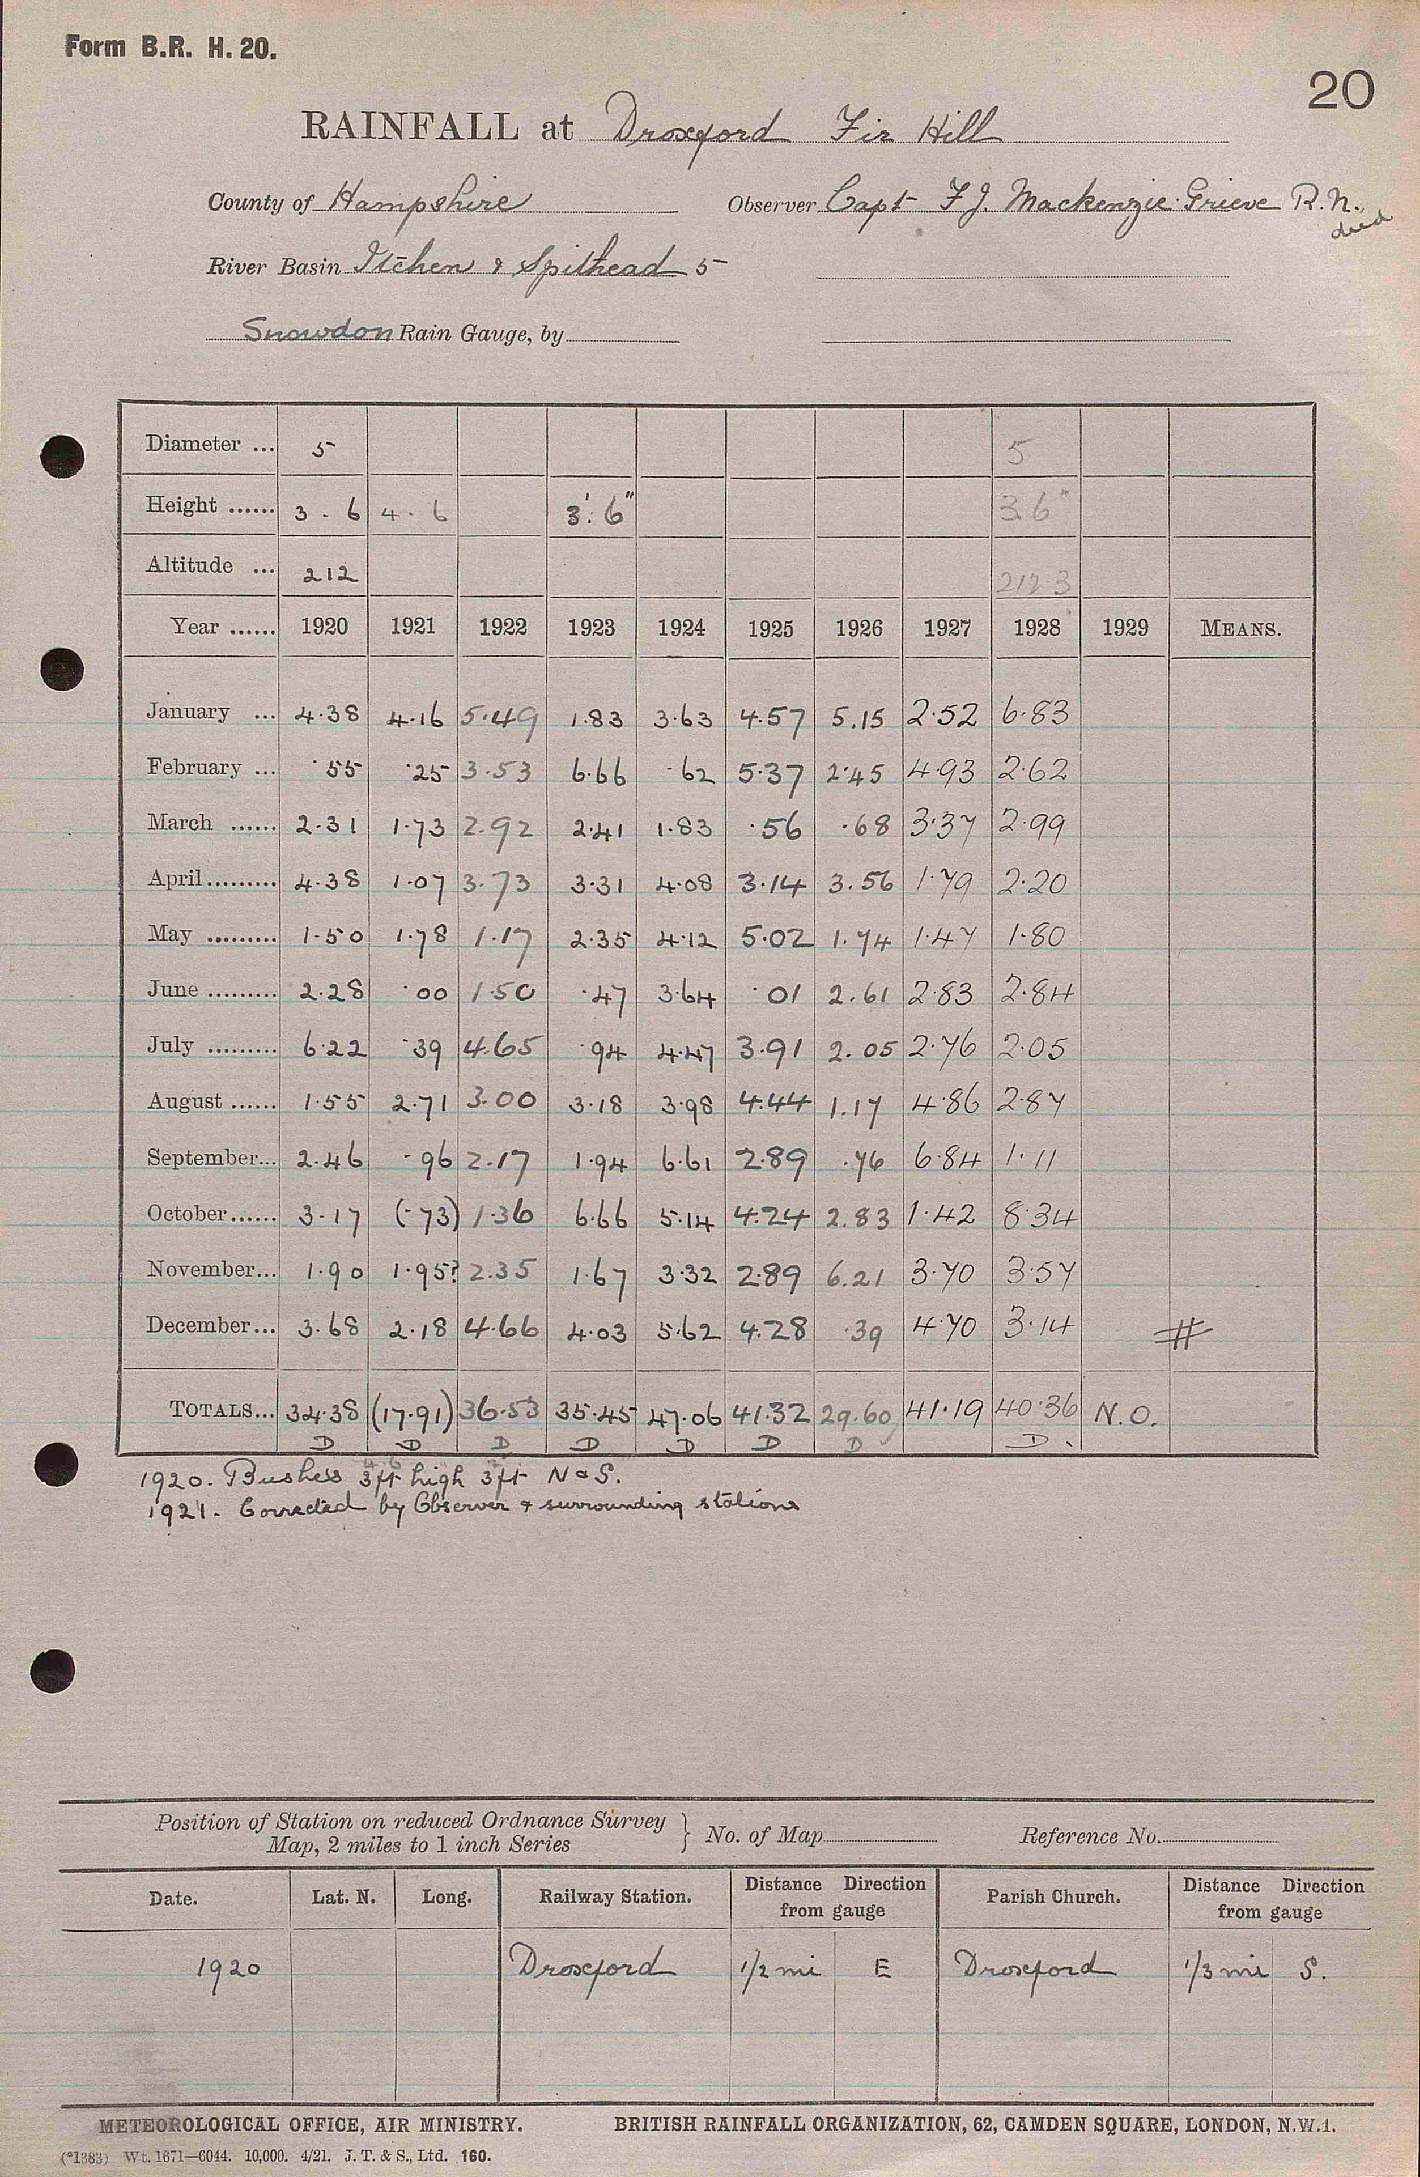 Form B.R. H. 20.
20
RAINFALL at Droxford Fir Hill
County of Hampshire Observer Capt F.J. Mackenzie-Grieve R.N.
died
River Basin Itchen & Spithead 5
Snowdon Rain Gauge, by
Diameter ... 5 5
Height ...... 3 . 6 4 . 6 3'. 6" 3.6"
Altitude ... 212 212.3
Year ...... 1920 1921 1922 1923 1924 1925 1926 1927 1928 1929 MEANS.
January ... 4.38 4.16 5.49 1.83 3.63 4.57 5.15 2.52 6.83
February ... .55 .25 3.53 6.66 .62 5.37 2.45 4.93 2.62
March ...... 2.31 1.73 2.92 2.41 1.83 .56 .68 3.37 2.99
April......... 4.38 1.07 3.73 3.31 4.08 3.14 3.56 1.79 2.20
May ......... 1.50 1.78 1.17 2.35 4.12 5.02 1.74 1.47 1.80
June ......... 2.28 .00 1.50 .47 3.64 .01 2.61 2.83 2.84
July ......... 6.22 .39 4.65 .94 4.47 3.91 2.05 2.76 2.05
August ...... 1.55 2.71 3.00 3.18 3.98 4.44 1.17 4.86 2.87
September... 2.46 .96 2.17 1.94 6.61 2.89 .76 6.84 1.11
October...... 3.17 (.73) 1.36 6.66 5.14 4.24 2.83 1.42 8.34
November... 1.90 1.95? 2.35 1.67 3.32 2.89 6.21 3.70 3.57
December... 3.68 2.18 4.66 4.03 5.62 4.28 .39 4.70 3.14 #
TOTALS... 34.38 (17.91) 36.53 35.45 47.06 41.32 29.60 41.19 40.36 N.O.
D D D D D D D D.
1920. Bushes 3ft high 3ft N & S.
1921. Corrected by Observer & surrounding stations
Position of Station on reduced Ordnance Survey
Map, 2 miles to 1 inch Series } No. of Map Reference No.
Date. Lat. N. Long. Railway Station. Distance Direction from gauge Parish Church. Distance Direction from gauge
1920 Droxford 1/2 mi E Droxford 1/3 mi S.
METEOROLOGICAL OFFICE, AIR MINISTRY. BRITISH RAINFALL ORGANIZATION, 62, CAMDEN SQUARE, LONDON, N.W.1.
(*1383) Wt. 1671—6044. 10,000. 4/21. J. T. & S., Ltd. 160.